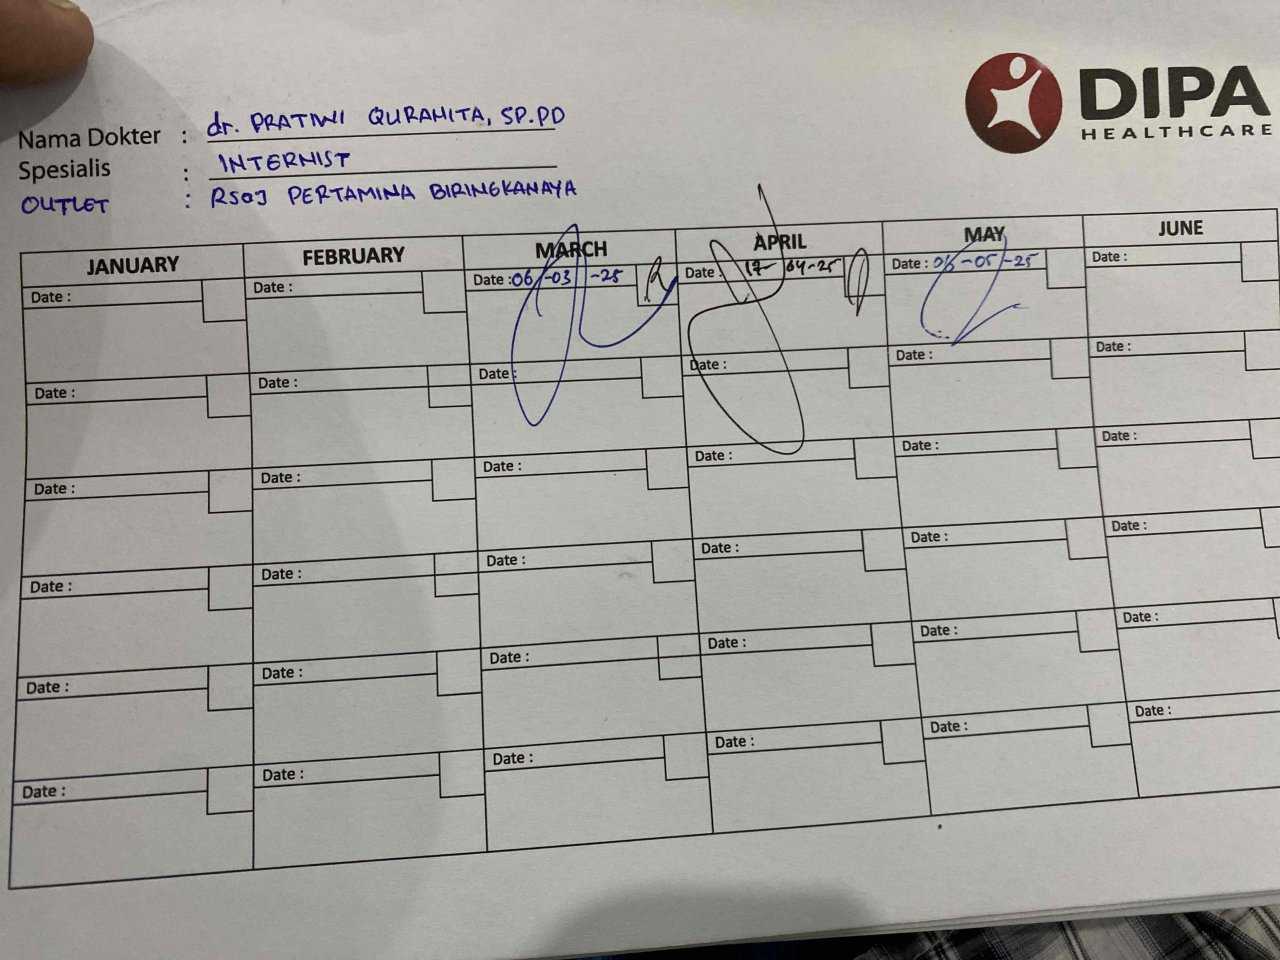 DIPA
HEALTHCARE
Nama Dokter : dr. PRATIWI QURANITA, SP.PD
Spesialis : INTERNIST
OUTLET : RSOJ PERTAMINA BIRINGKANAYA
JANUARY FEBRUARY MARCH APRIL MAY JUNE
Date : Date : Date : 06-03-25 Date : 17-04-25 Date : 06-05-25 Date :
Date : Date : Date : Date : Date : Date :
Date : Date : Date : Date : Date : Date :
Date : Date : Date : Date : Date : Date :
Date : Date : Date : Date : Date : Date :
Date : Date : Date : Date : Date : Date :